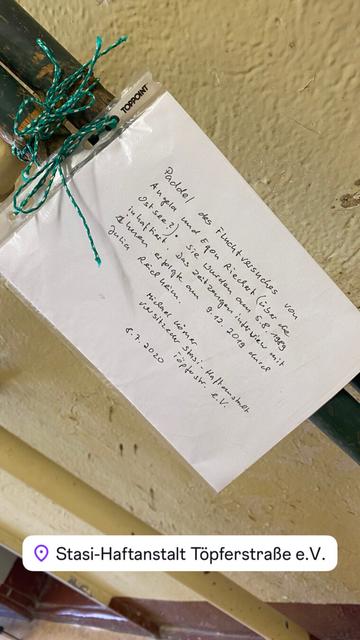 TOPPOINT
Paddel des Fluchtversuches von
Angela und Egon Riechert (über die
Ostsee). Sie wurden am 5.8.1989
inhaftiert. Das Zeitzeugeninterview mit
Ihnen erfolgte am 9.12.2019 durch
Julia Reichheim.
Michael Körner
Vorsitzender Stasi-Haftanstalt
Töpferstr. e.V.
8.7.2020
Stasi-Haftanstalt Töpferstraße e.V.